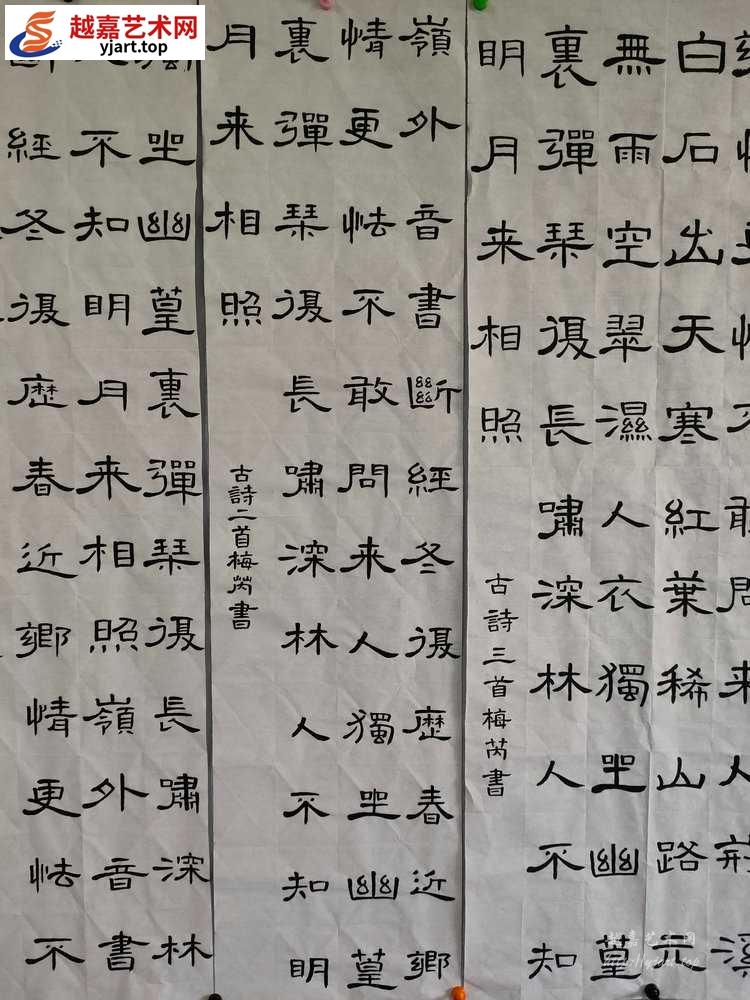 越嘉艺术网
yjart.top
情更怯不敢問来人荊溪
白石出天寒紅葉稀山路元
無雨空翠濕人衣獨坐幽篁
裏彈琴復長嘯深林人不知
明月来相照
古詩三首梅芮書
嶺外音書斷經冬復歷春近鄉
情更怯不敢問来人獨坐幽篁
裏彈琴復長嘯深林人不知明
月来相照
古詩二首梅芮書
獨坐幽篁裏彈琴復長嘯深林
不知明月来相照嶺外音書
斷經冬復歷春近鄉情更怯不
越嘉艺术网
http://yjart.top